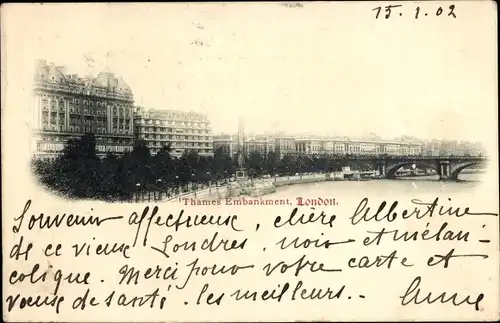 15.1.02
Thames Embankment, London.
Souvenir affectueuse, chère Albertine
de ce vieux Londres, noir et mélan-
colique. Merci pour votre carte et
voeux de santé, les meilleurs..
Anne